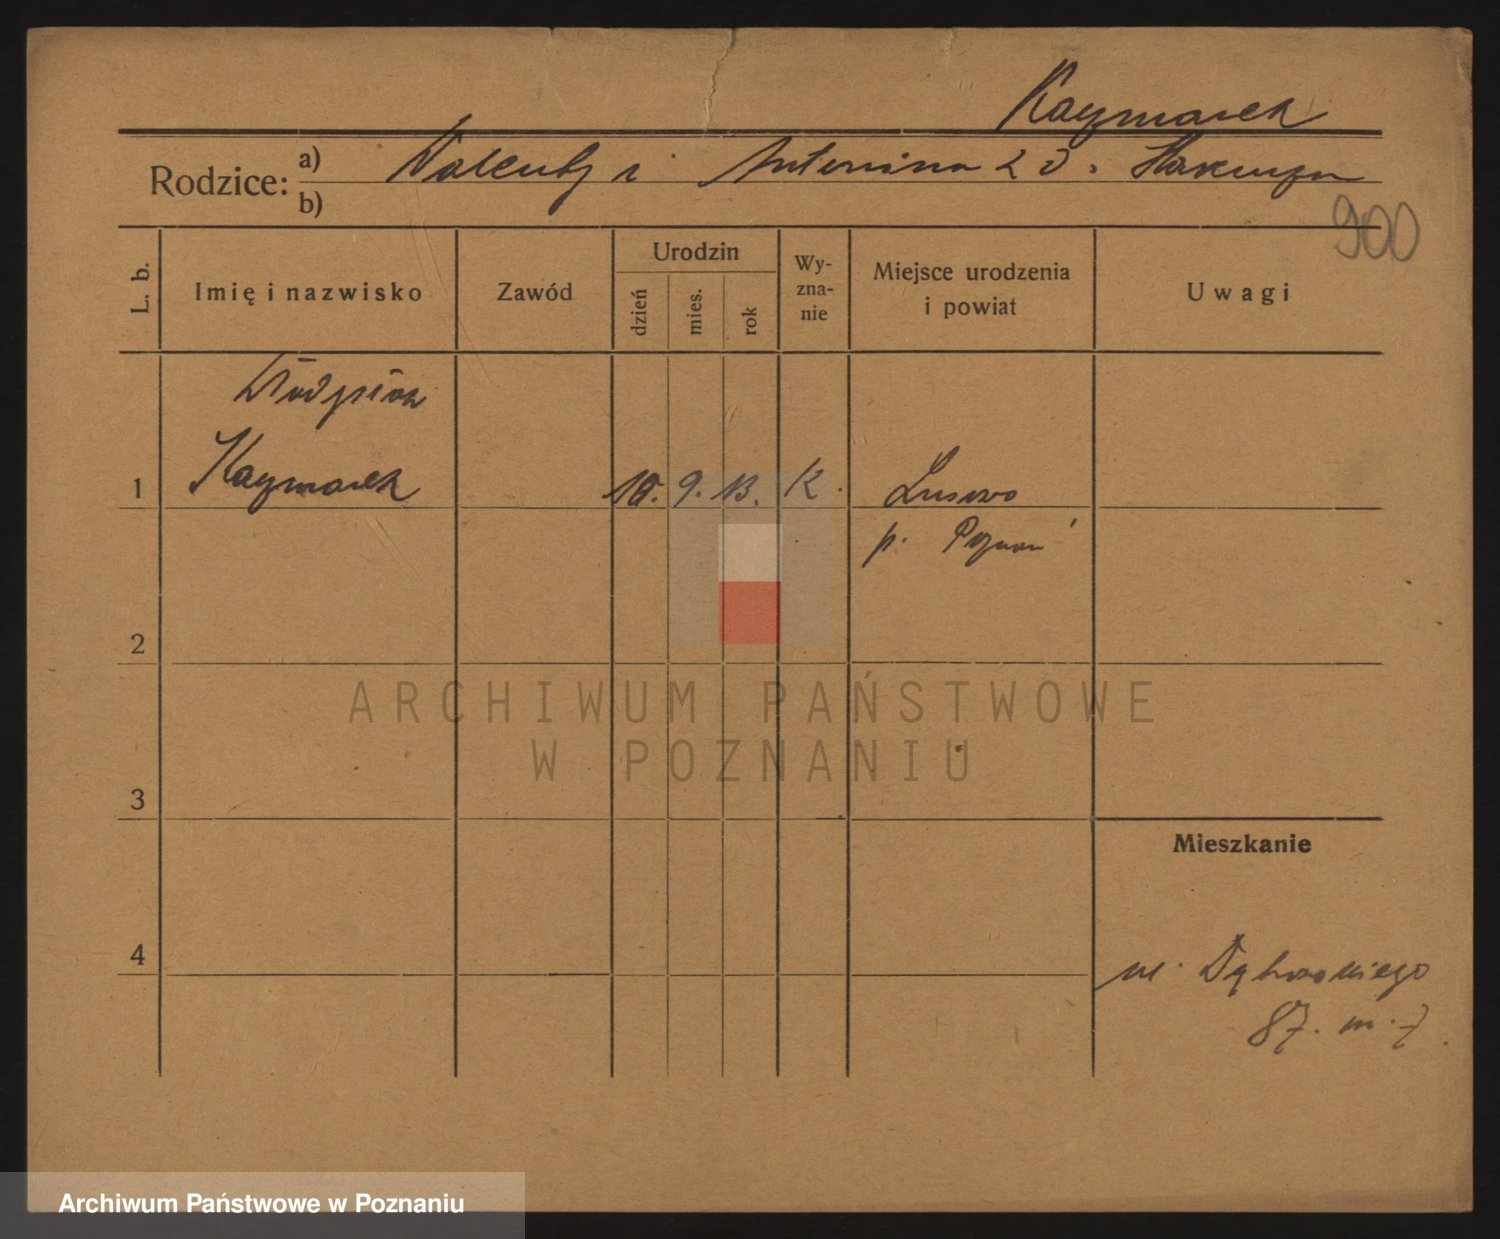 Kaczmarek
Rodzice: a) Walenty i Antonina z d.
b)
900
L. b.
Imię i nazwisko
Zawód
Urodzin
dzień
mies.
rok
Wy-
zna-
nie
Miejsce urodzenia
i powiat
Uwagi
Władysław
1 Kaczmarek 10. 9. 13. K. Lusowo
p. Poznań
2
3
4
Mieszkanie
ul. Dąbrowskiego
87. m. 7.
ARCHIWUM PAŃSTWOWE
W POZNANIU
Archiwum Państwowe w Poznaniu